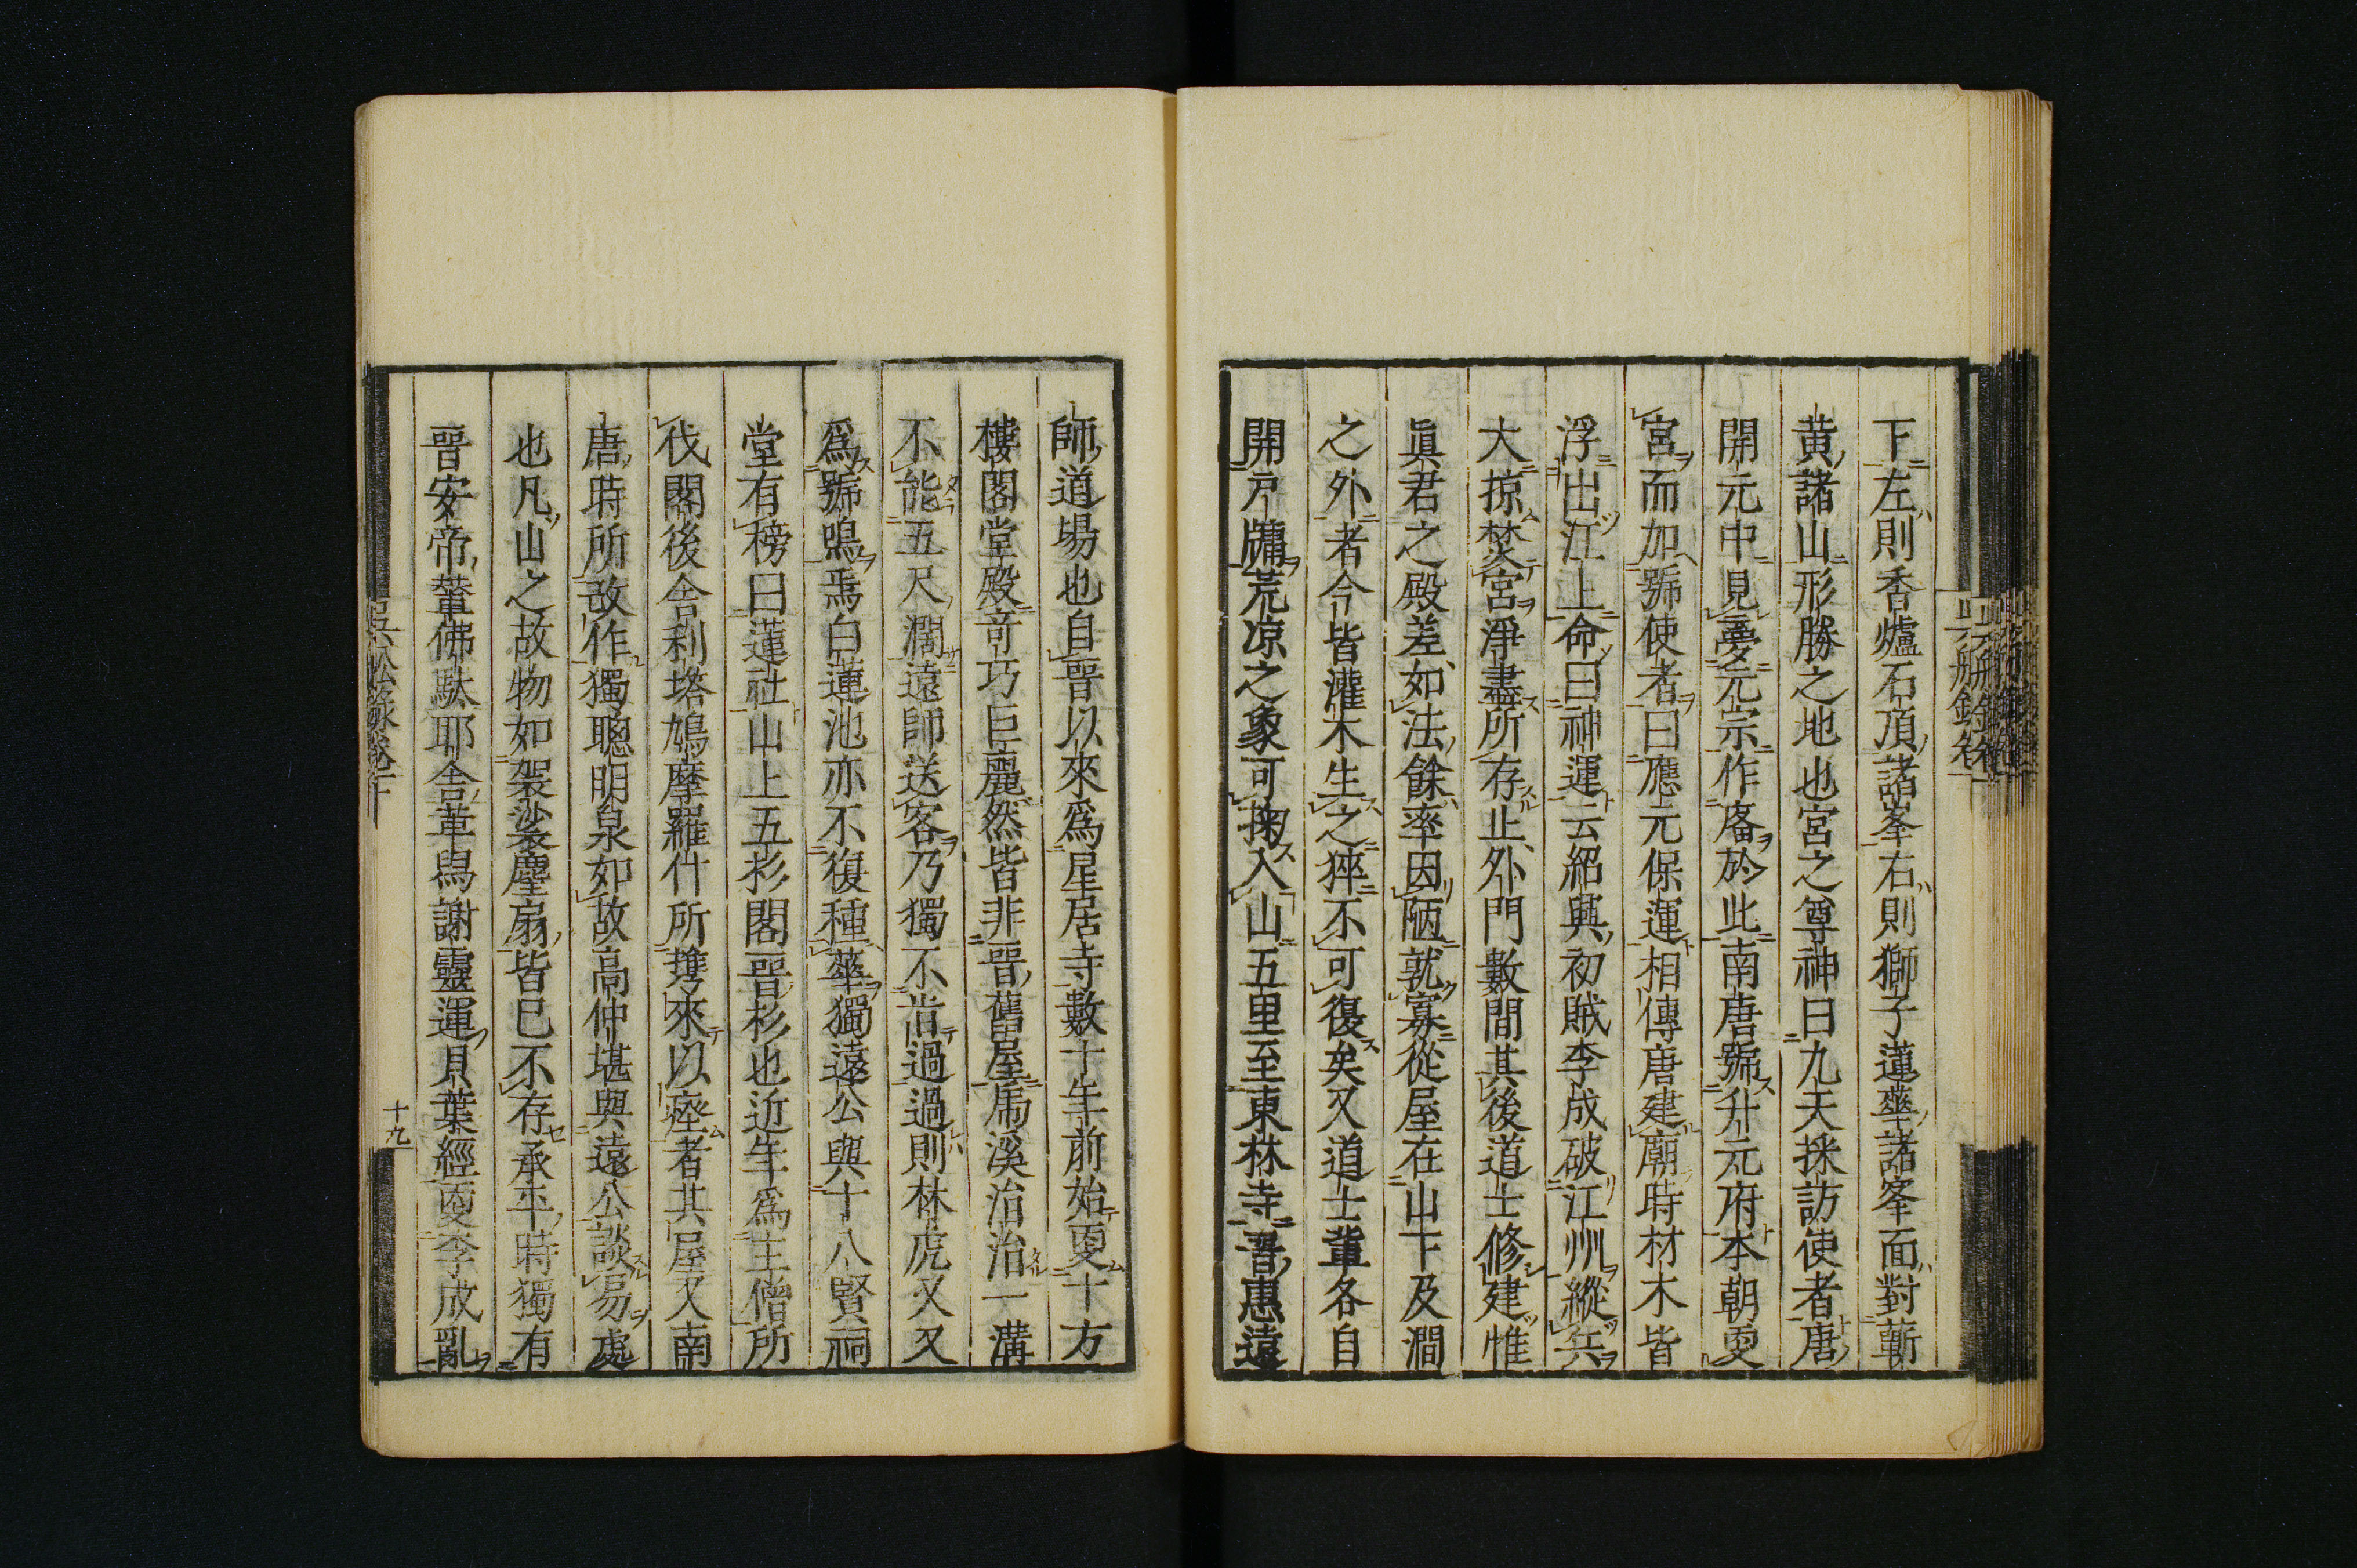 下左則香爐石頂諸峯右則獅子蓮華諸峯面對蘄
黄諸山形勝之地也宮之尊神曰九天採訪使者唐
開元中見夢元宗作廟於此南唐號升元府本朝更
宮而加號使者曰應元保運相傳唐建廟時材木皆
浮出江上命曰神運云紹興初賊李成破江州縱兵
大掠焚宮淨盡所存止外門數間其後道士修建惟
眞君之殿差如法餘率因陋就寡從屋在山下及澗
之外者今皆灌木生之猝不可復矣又道士輩各自
開戸牖荒凉之象可掬入山五里至東林寺晋惠遠
師道場也自晋以來爲星居寺數十年前始更十方
樓閣堂殿竒巧巨麗然皆非晋舊屋虎溪治治一溝
不能五尺濶遠師送客乃獨不肯過過則林虎又又
爲號鳴焉白蓮池亦不復種華獨遠公與十八賢祠
堂有榜曰蓮社山上五杉閣晋杉也近年爲主僧所
伐閣後舍利塔鳩摩羅什所携來以瘞者其屋又南
唐時所改作獨聰明泉如故高仲堪與遠公談易處
也凡山之故物如袈裟麈扇皆已不存承平時獨有
晋安帝輦佛馱耶舍革舄謝靈運貝葉經更李成亂
呉船録卷下
十九